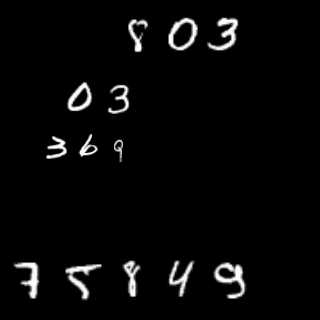 803
03
369
75849